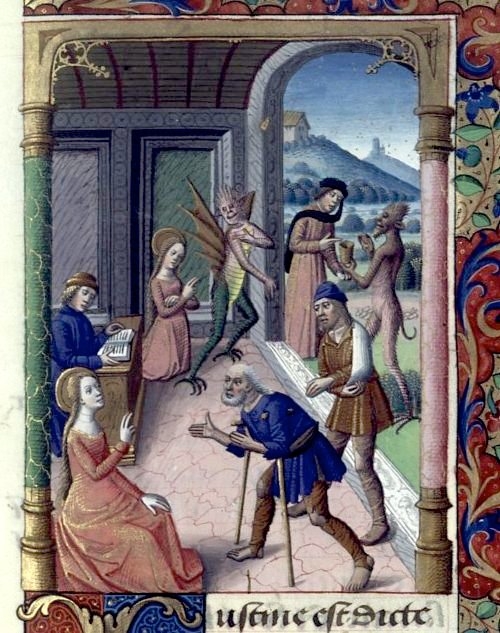 ustine est dicte